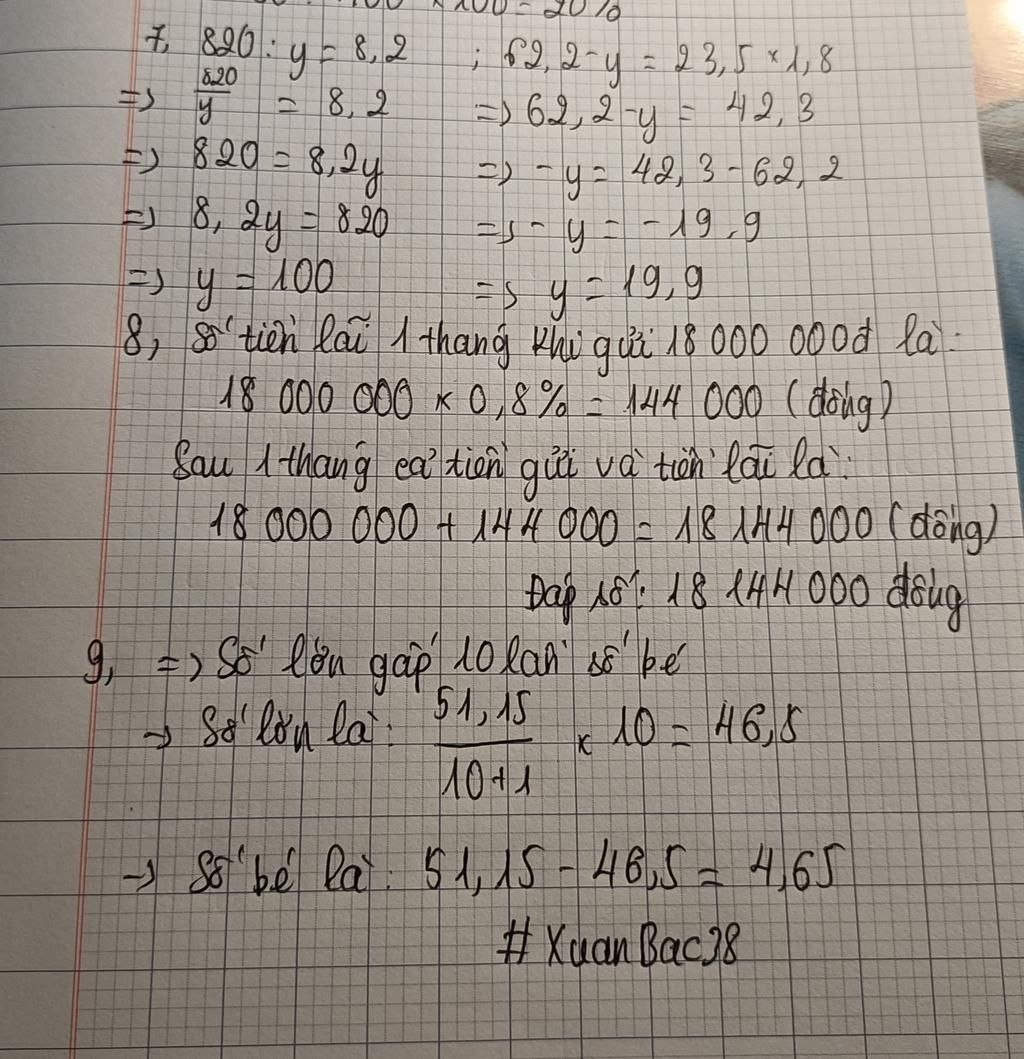 × 100 = 20%
7, 820 : y = 8,2 ; 62,2 - y = 23,5 × 1,8
=> 820/y = 8,2 => 62,2 - y = 42,3
=> 820 = 8,2y => - y = 42,3 - 62,2
=> 8,2y = 820 => - y = - 19,9
=> y = 100 => y = 19,9
8, Số tiền lãi 1 tháng khi gửi 18 000 000đ là:
18 000 000 × 0,8% = 144 000 (đồng)
Sau 1 tháng cả tiền gửi và tiền lãi là:
18 000 000 + 144 000 = 18 144 000 (đồng)
Đáp số: 18 144 000 đồng
9, => Số lớn gấp 10 lần số bé
→ Số lớn là: 51,15/10+1 × 10 = 46,5
→ Số bé là: 51,15 - 46,5 = 4,65
# XuanBac38